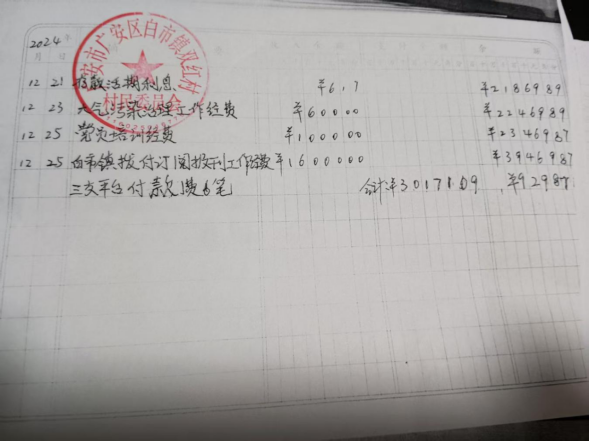 2024年
月 日
安市广安区白市镇双红村
村民委员会
12 21 拨款活期利息 ¥6.17 ¥2186989
12 23 大气污染治理工作经费 ¥60000 ¥2246989
12 25 党员培训经费 ¥100000 ¥2346987
12 25 白市镇拨付订阅报刊工作经费 ¥1600000 ¥3946987
三支平台付款1费6笔 合计¥30171.09 ¥92987